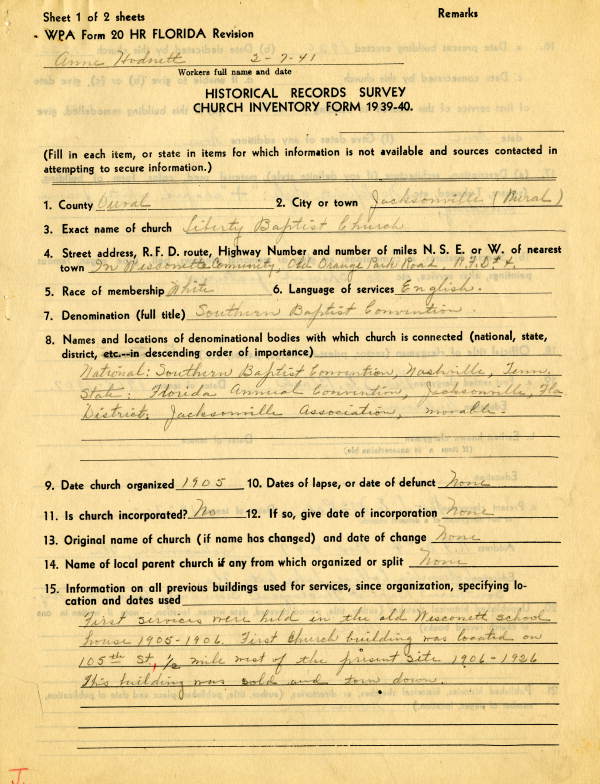 Sheet 1 of 2 sheets Remarks
WPA Form 20 HR FLORIDA Revision
Anne Hodnett 2-7-41
Workers full name and date
HISTORICAL RECORDS SURVEY
CHURCH INVENTORY FORM 1939-40.
(Fill in each item, or state in items for which information is not available and sources contacted in
attempting to secure information.)
1. County Duval 2. City or town Jacksonville (Rural)
3. Exact name of church Liberty Baptist Church
4. Street address, R. F. D. route, Highway Number and number of miles N. S. E. or W. of nearest
town In Wesconett Community, Old Orange Park Road, R.F.D.
5. Race of membership White 6. Language of services English.
7. Denomination (full title) Southern Baptist Convention.
8. Names and locations of denominational bodies with which church is connected (national, state,
district, etc.--in descending order of importance)
National: Southern Baptist Convention, Nashville, Tenn.
State: Florida Annual Convention, Jacksonville, Fla
District: Jacksonville Association, movable.
9. Date church organized 1905 10. Dates of lapse, or date of defunct None
11. Is church incorporated? No 12. If so, give date of incorporation None
13. Original name of church (if name has changed) and date of change None
14. Name of local parent church if any from which organized or split None
15. Information on all previous buildings used for services, since organization, specifying lo-
cation and dates used
First services were held in the old Wesconett school
house 1905-1906. First Church building was located on
105th St, 1/2 mile west of the present site 1906-1926
This building was sold and torn down.
J.